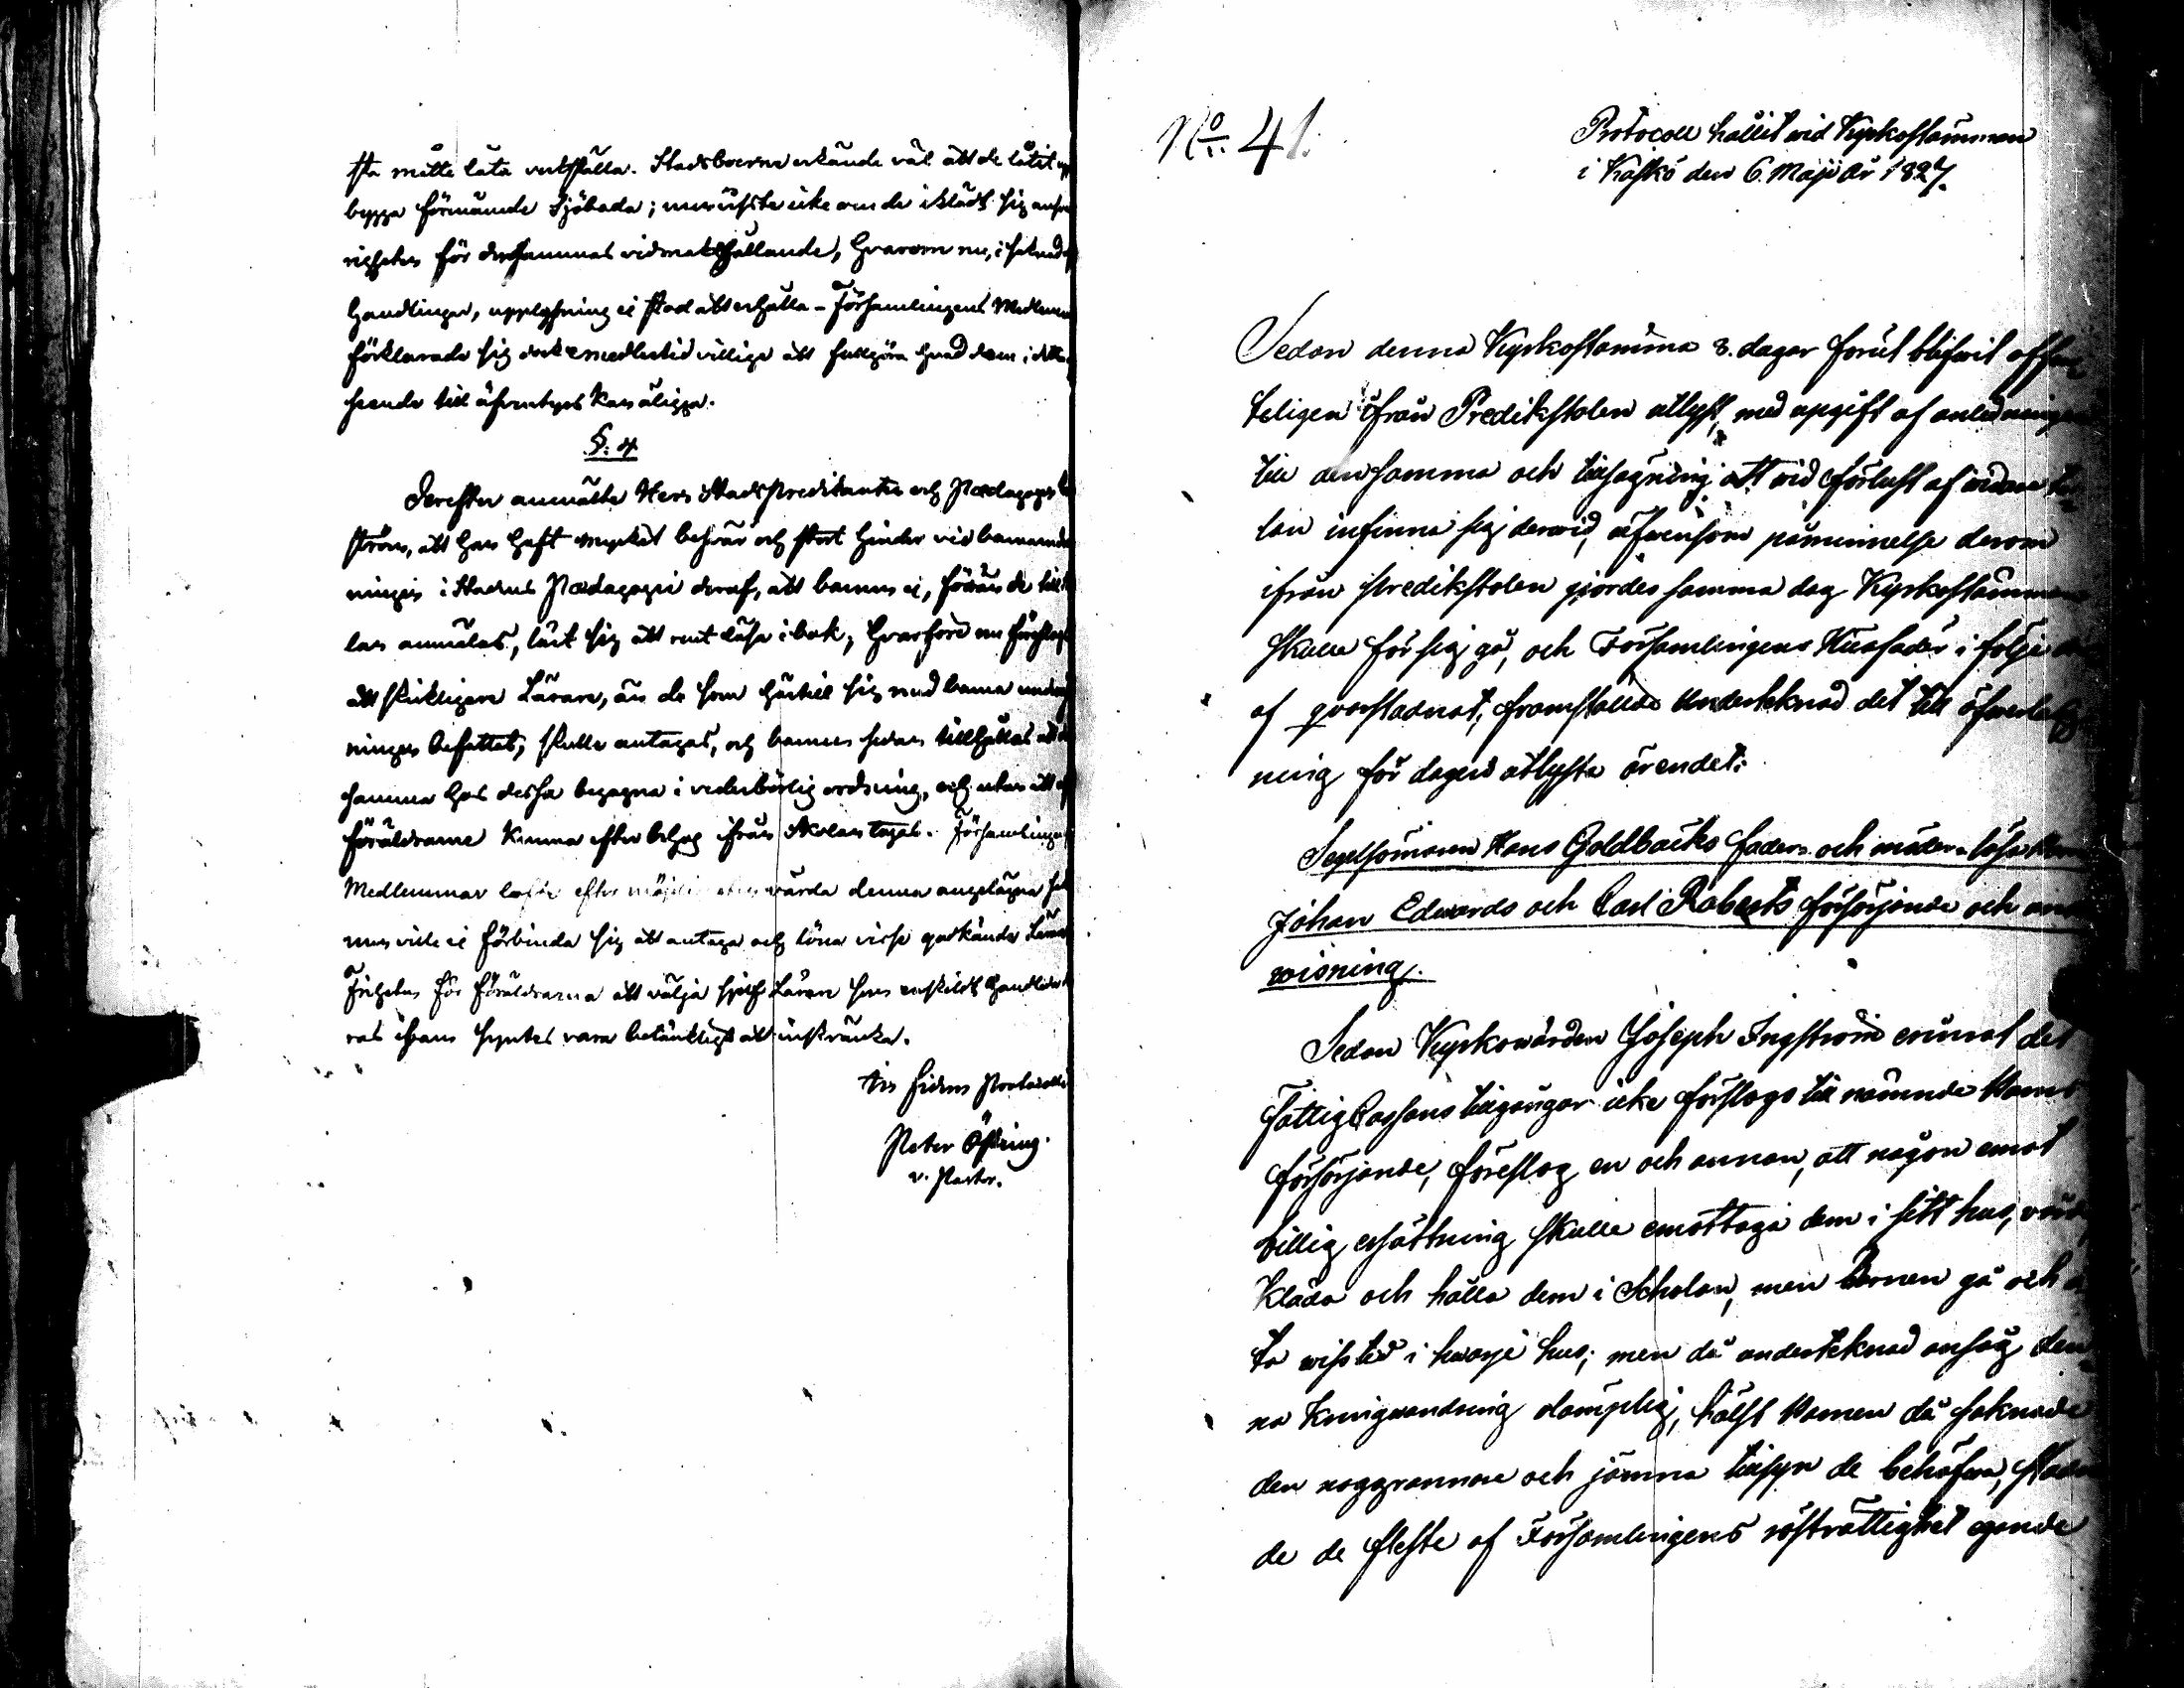 sta måtte låta verkställa. Stadsboerne erkände väl att de låtit upp
bygga förnämde Sjöbada; men visste icke om de iklädt sig ansva
righeten för densammas vidmakthållande, hvarom nu, i saknad af
Handlingar, upplysning ej stod att erhålla – Församlingens Medlemmar
förklarade sig dock emedlertid villige att fullgöra hvad dem i detta
seende till äfventyrs kan åligga.
§. 4
Derefter anmälte Herr StadsPredikanten och Pædagogen
ström, att han haft mycket besvär och stort hinder vid barnunder
ningen i Stadens Pædagogie deraf, att barnen ej, förrän de till
lan anmälas, lärt sig att rent läsa i bok; hvarföre nu föreslogs
att skickligare Lärare, än de som härtill sig med barna undervis
ningen befattat, skulle antagas, och barnen sedan tillhållas att den
samma hos dessa begagna i vederbörlig ordning, och utan att af
föräldrarne kunna efter behag ifrån Skolan tagas. Församlingens
Medlemmar lofte efter möjligheten vårda denna angelägna sak
men ville ej förbinda sig att antaga och löna visse godkände Lärare
Friheten för föräldrarna att välja sjelf Lärare för enskildt Handledande
ras ibland syntes vara betänkligt att inskränka.
In fidem Protocolli
Peter Östring
v. Pastor.
No. 41.
Protocoll hållit vid Kyrkostämman
i Kaskö den 6. Maji År 1827.
Sedan denna Kyrkostämma 8. dagar förut blifwit offen
teligen ifrån Predikstolen utlyst, med upgift af anledningen
till densamma och tillsägning att wid förlust af widare ta
lan infinna sig derwid, äfwensom påminnelse derom
ifrån Predikstolen gjordes samma dag Kyrkostämman
skulle för sig gå, och Församlingens Husfäder i följe der
af qvarstadnat, framstälde Undertecknad det till öfwerlägg
ning för dagen utlysta ärendet:
Segelsömaren Hans Goldbäcks fader- och moder-lösa Barn
Johan Edwards och Carl Roberts försörjande och under
wisning.
Sedan Kyrkowärden Joseph Ingström erinrat det
FattigCassans tillgångar icke förslogo till nämnde Barns
försörjande, föreslog en och annan, att någon emot
billig ersättning skulle emottaga dem i sitt hus, vårda,
kläda och hålla dem i Scholan, men Barnen gå och ä
ta wiss tid i hwarje hus; men då undertecknad ansåg den
na kringwandring olämplig, hälst Barnen då saknade
den noggrannare och jämna tillsyn de behöfwa, stadna
de de fleste af Församlingens röstsrättighet egande